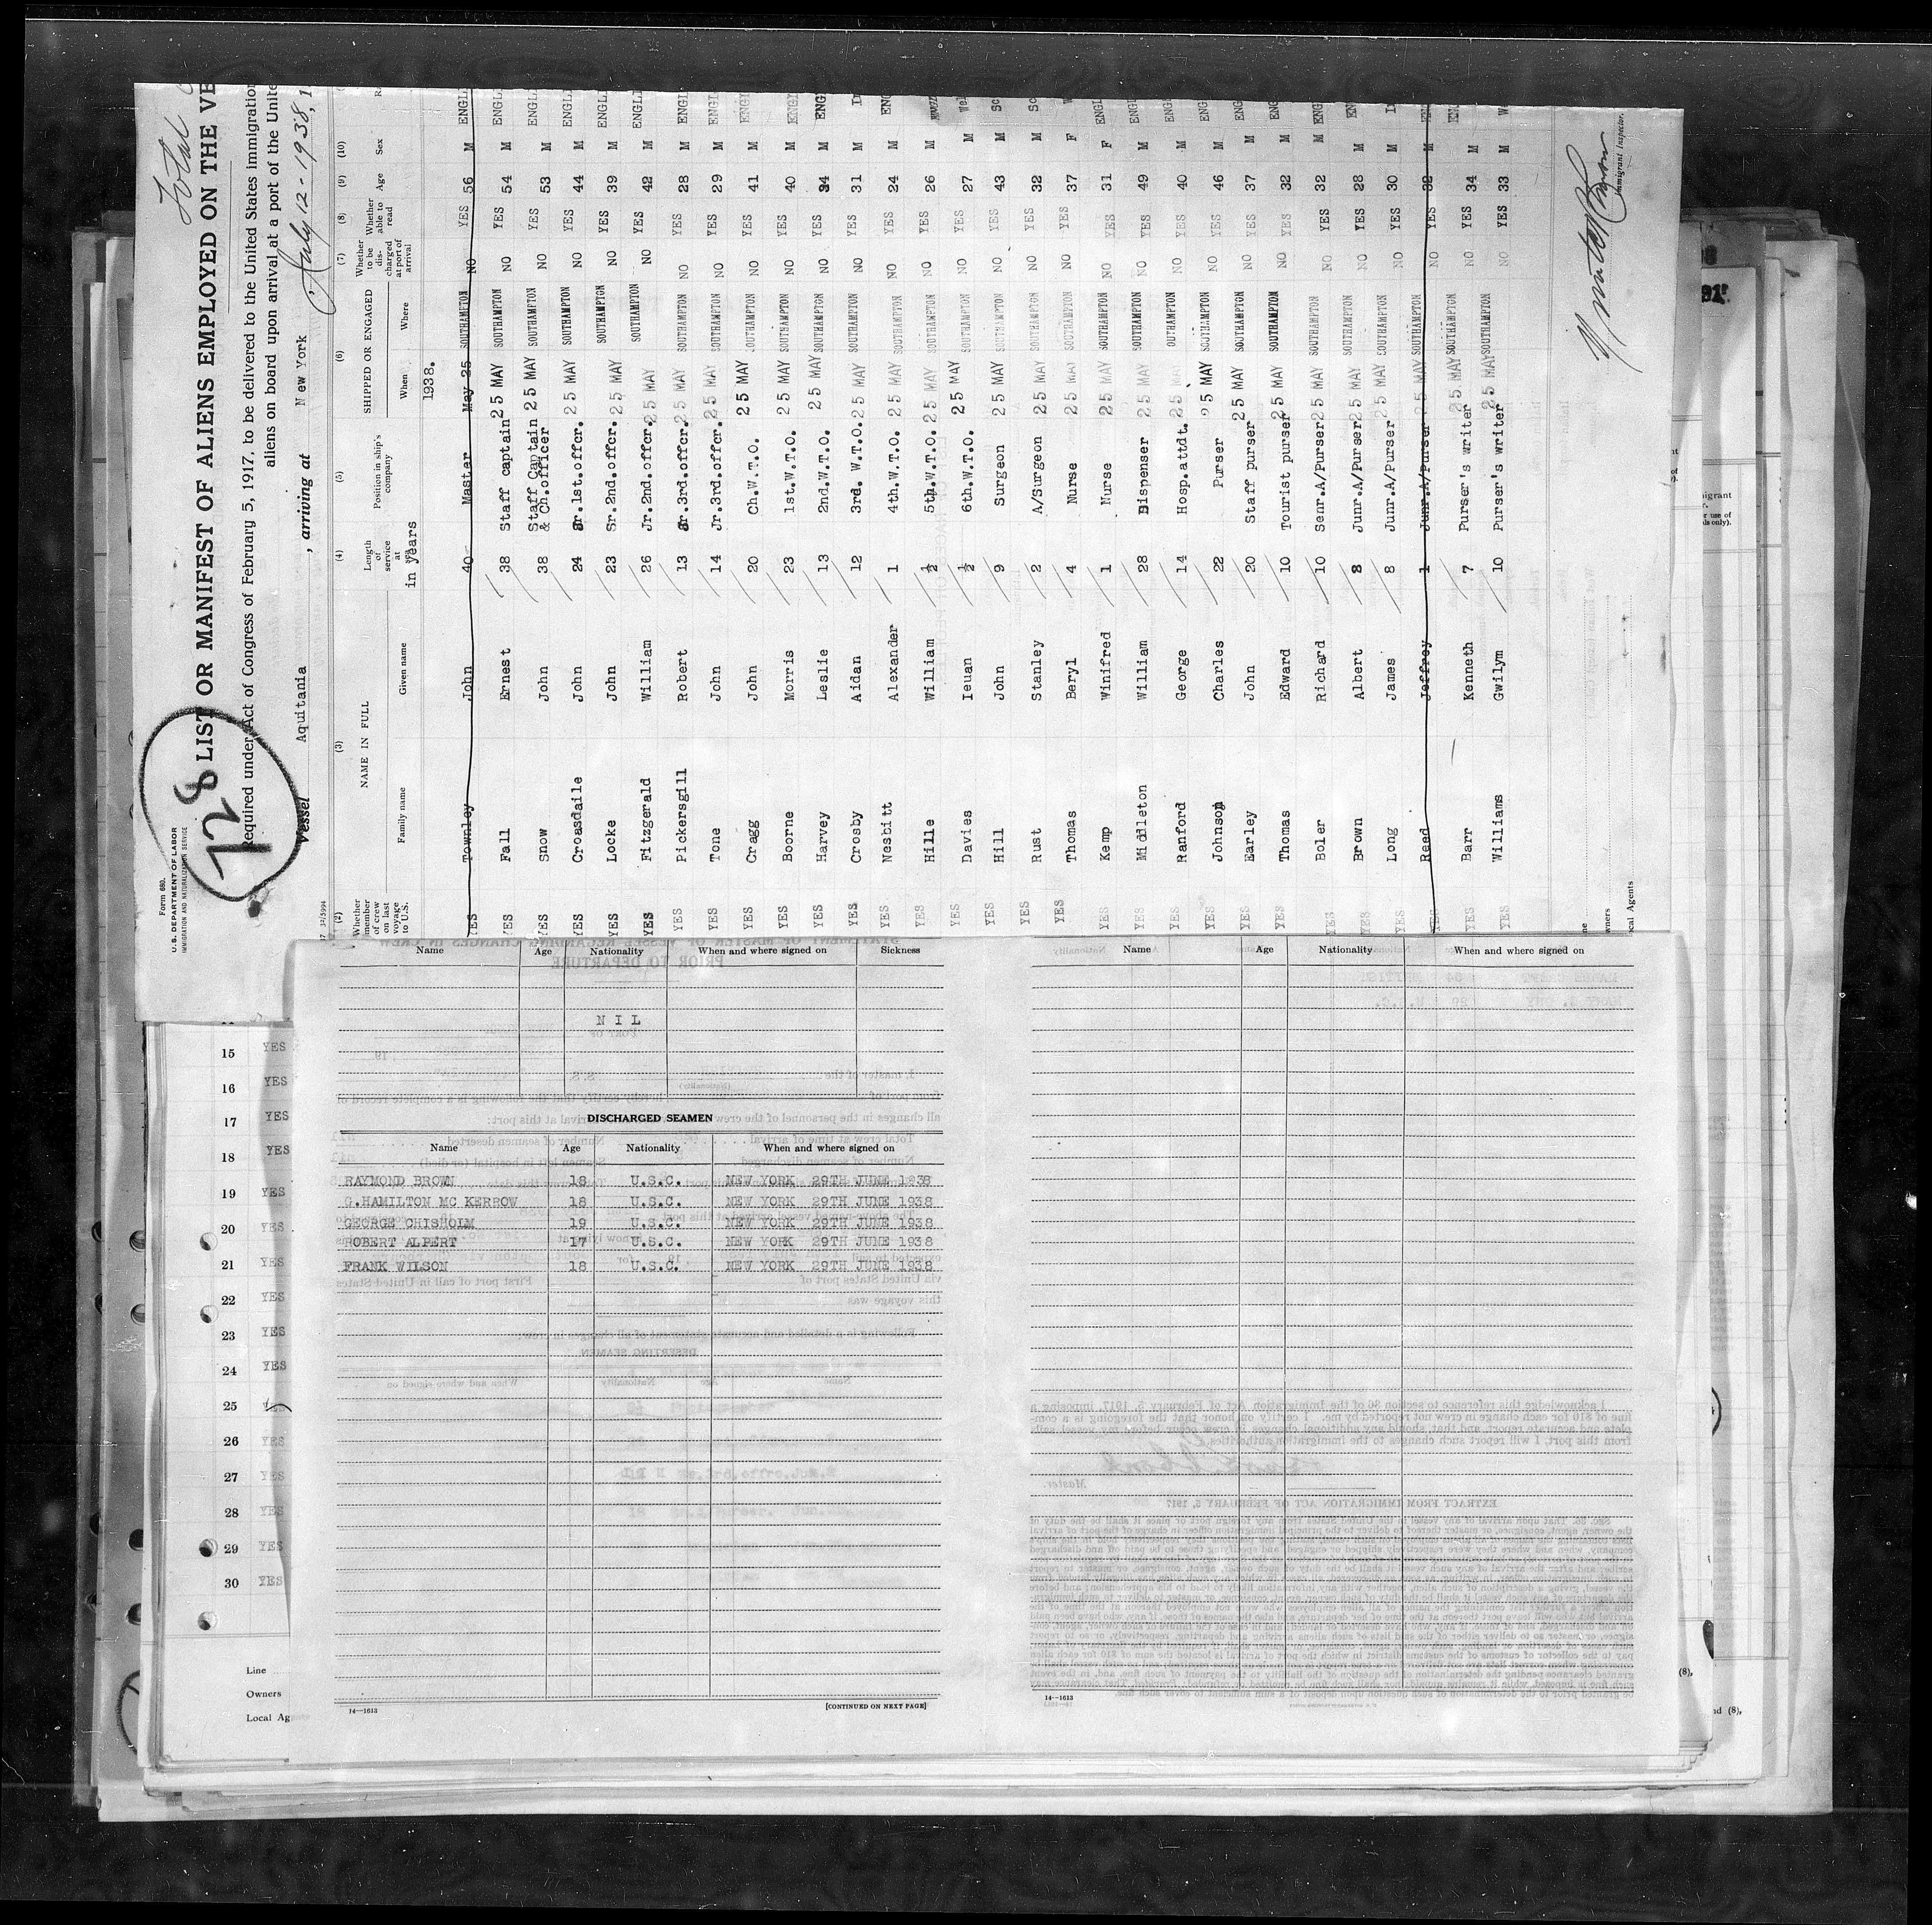 Form 680.
U.S. DEPARTMENT OF LABOR
IMMIGRATION AND NATURALIZATION SERVICE
728
Total
LIST OR MANIFEST OF ALIENS EMPLOYED ON THE VE
Required under Act of Congress of February 5, 1917, to be delivered to the United States immigration
aliens on board upon arrival at a port of the Unite
Vessel Aquitania , arriving at New York July 12 - 1938, 1
(2) (3) (4) (5) (6) (7) (8) (9) (10)
Whether member of crew on last voyage to U.S. NAME IN FULL Family name Given name Length of service at sea in years Position in ship's company SHIPPED OR ENGAGED When Where Whether to be discharged at port of arrival Whether able to read Age Sex
1938.
YES Townley John 40 Master May 25 SOUTHAMPTON NO YES 56 M ENGLI
YES Fall Ernest 38 Staff captain 25 MAY SOUTHAMPTON NO YES 54 M ENGLI
YES Snow John 38 Staff Captain & Ch.officer 25 MAY SOUTHAMPTON NO YES 53 M ENGLI
YES Croasdaile John 24 Sr.1st.offcr. 25 MAY SOUTHAMPTON NO YES 44 M ENGLI
YES Locke John 23 Sr.2nd.offcr. 25 MAY SOUTHAMPTON NO YES 39 M ENGLI
YES Fitzgerald William 26 Jr.2nd.offcr. 25 MAY SOUTHAMPTON NO YES 42 M ENGLI
YES Pickersgill Robert 13 Sr.3rd.offcr. 25 MAY SOUTHAMPTON NO YES 28 M ENGL
YES Tone John 14 Jr.3rd.offcr. 25 MAY SOUTHAMPTON NO YES 29 M ENGL
YES Cragg John 20 Ch.W.T.O. 25 MAY SOUTHAMPTON NO YES 41 M ENGL
YES Boorne Morris 23 1st.W.T.O. 25 MAY SOUTHAMPTON NO YES 40 M ENGL
YES Harvey Leslie 13 2nd.W.T.O. 25 MAY SOUTHAMPTON NO YES 34 M ENG
YES Crosby Aidan 12 3rd. W.T.O. 25 MAY SOUTHAMPTON NO YES 31 M
YES Nesbitt Alexander 1 4th.W.T.O. 25 MAY SOUTHAMPTON NO YES 24 M ENG
YES Hille William ½ 5th.W.T.O. 25 MAY SOUTHAMPTON NO YES 26 M
YES Davies Ieuan ½ 6th.W.T.O. 25 MAY SOUTHAMPTON NO YES 27 M Wel
YES Hill John 9 Surgeon 25 MAY SOUTHAMPTON NO YES 43 M Sc
YES Rust Stanley 2 A/Surgeon 25 MAY SOUTHAMPTON NO YES 32 M Sc
YES Thomas Beryl 4 Nurse 25 MAY SOUTHAMPTON NO YES 37 F
YES Kemp Winifred 1 Nurse 25 MAY SOUTHAMPTON NO YES 31 F ENGL
YES Middleton William 28 Dispenser 25 MAY SOUTHAMPTON NO YES 49 M ENG
YES Ranford George 14 Hosp.attdt. 25 MAY SOUTHAMPTON NO YES 40 M ENG
YES Johnson Charles 22 Purser 25 MAY SOUTHAMPTON NO YES 46 M ENG
YES Earley John 20 Staff purser 25 MAY SOUTHAMPTON NO YES 37 M ENG
YES Thomas Edward 10 Tourist purser 25 MAY SOUTHAMPTON NO YES 32 M EN
YES Boler Richard 10 Senr.A/Purser 25 MAY SOUTHAMPTON NO YES 32 M ENG
YES Brown Albert 8 Junr.A/Purser 25 MAY SOUTHAMPTON NO YES 28 M
YES Long James 8 Junr.A/Purser 25 MAY SOUTHAMPTON NO YES 30 M
YES Reed Jeffrey 1 Junr.A/Purser 25 MAY SOUTHAMPTON NO YES 32 M
YES Barr Kenneth 7 Purser's writer 25 MAY SOUTHAMPTON NO YES 34 M
YES Williams Gwilym 10 Purser's writer 25 MAY SOUTHAMPTON NO YES 33 M W
Immigrant Inspector.
Name Age Nationality When and where signed on Sickness
NIL
DISCHARGED SEAMEN
Name Age Nationality When and where signed on
RAYMOND BROWN 18 U.S.C. NEW YORK 29TH JUNE 1938
G.HAMILTON MC KERROW 18 U.S.C. NEW YORK 29TH JUNE 1938
GEORGE CHISHOLM 19 U.S.C. NEW YORK 29TH JUNE 1938
ROBERT ALPERT 17 U.S.C. NEW YORK 29TH JUNE 1938
FRANK WILSON 18 U.S.C. NEW YORK 29TH JUNE 1938
14—1613
[CONTINUED ON NEXT PAGE]
Name Age Nationality When and where signed on
14—1613
15 YES
16 YES
17 YES
18 YES
19 YES
20 YES
21 YES
22 YES
23 YES
24 YES
25 YES
26 YES
27 YES
28 YES
29 YES
30 YES
Line
Owners
Local Ag